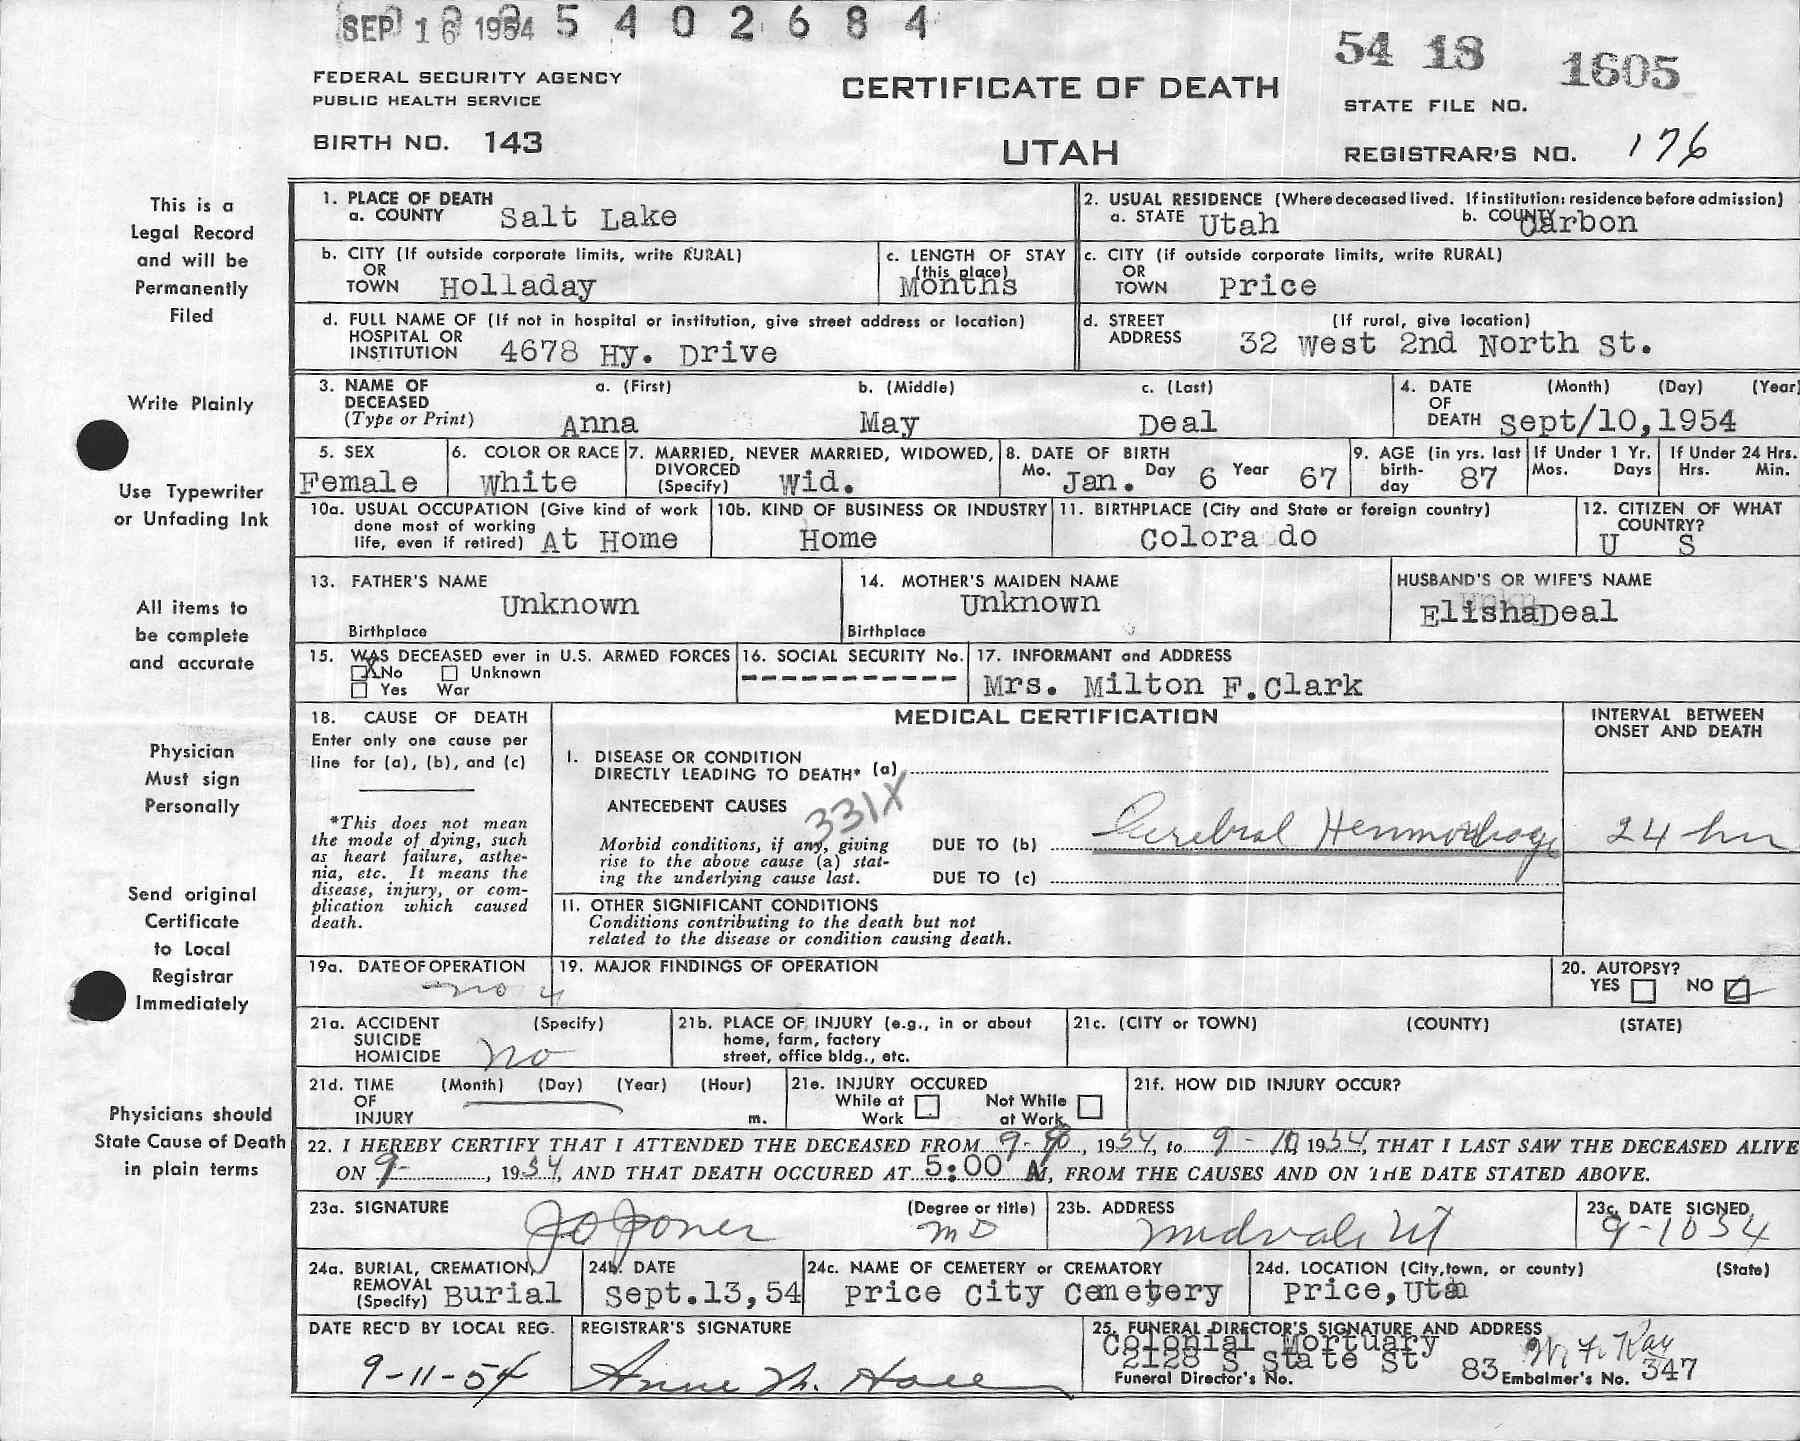 SEP 16 1954 5 4 0 2 6 8 4
54 18 1605
FEDERAL SECURITY AGENCY
PUBLIC HEALTH SERVICE
CERTIFICATE OF DEATH
STATE FILE NO.
BIRTH NO. 143
UTAH
REGISTRAR'S NO. 176
This is a
Legal Record
and will be
Permanently
Filed
Write Plainly
Use Typewriter
or Unfading Ink
All items to
be complete
and accurate
Physician
Must sign
Personally
Send original
Certificate
to Local
Registrar
Immediately
Physicians should
State Cause of Death
in plain terms
1. PLACE OF DEATH
a. COUNTY Salt Lake
2. USUAL RESIDENCE (Where deceased lived. If institution: residence before admission)
a. STATE Utah b. COUNTY Carbon
b. CITY (If outside corporate limits, write RURAL)
OR
TOWN Holladay
c. LENGTH OF STAY
(this place)
Months
c. CITY (if outside corporate limits, write RURAL)
OR
TOWN Price
d. FULL NAME OF (If not in hospital or institution, give street address or location)
HOSPITAL OR
INSTITUTION 4678 Hy. Drive
d. STREET (If rural, give location)
ADDRESS 32 West 2nd North St.
3. NAME OF DECEASED
(Type or Print)
a. (First) b. (Middle) c. (Last)
Anna May Deal
4. DATE (Month) (Day) (Year)
OF
DEATH Sept/10,1954
5. SEX
Female
6. COLOR OR RACE
White
7. MARRIED, NEVER MARRIED, WIDOWED,
DIVORCED
(Specify) Wid.
8. DATE OF BIRTH
Mo. Jan. Day 6 Year 67
9. AGE (in yrs. last
birth-
day 87
If Under 1 Yr.
Mos. Days
If Under 24 Hrs.
Hrs. Min.
10a. USUAL OCCUPATION (Give kind of work
done most of working
life, even if retired) At Home
10b. KIND OF BUSINESS OR INDUSTRY
Home
11. BIRTHPLACE (City and State or foreign country)
Colora do
12. CITIZEN OF WHAT
COUNTRY?
U S
13. FATHER'S NAME
Unknown
Birthplace
14. MOTHER'S MAIDEN NAME
Unknown
Birthplace
HUSBAND'S OR WIFE'S NAME
ElishaDeal
15. WAS DECEASED ever in U.S. ARMED FORCES
X No Unknown
Yes War
16. SOCIAL SECURITY No.
-----------
17. INFORMANT and ADDRESS
Mrs. Milton F.Clark
18. CAUSE OF DEATH
Enter only one cause per
line for (a), (b), and (c)
*This does not mean
the mode of dying, such
as heart failure, asthe-
nia, etc. It means the
disease, injury, or com-
plication which caused
death.
MEDICAL CERTIFICATION
INTERVAL BETWEEN
ONSET AND DEATH
I. DISEASE OR CONDITION
DIRECTLY LEADING TO DEATH* (a)
ANTECEDENT CAUSES
331X
Morbid conditions, if any, giving
rise to the above cause (a) stat-
ing the underlying cause last.
DUE TO (b) Cerebral Hemmorhage 24 hrs
DUE TO (c)
11. OTHER SIGNIFICANT CONDITIONS
Conditions contributing to the death but not
related to the disease or condition causing death.
19a. DATE OF OPERATION
no
19. MAJOR FINDINGS OF OPERATION
20. AUTOPSY?
YES NO
21a. ACCIDENT (Specify)
SUICIDE
HOMICIDE no
21b. PLACE OF INJURY (e.g., in or about
home, farm, factory
street, office bldg., etc.
21c. (CITY or TOWN) (COUNTY) (STATE)
21d. TIME (Month) (Day) (Year) (Hour)
OF
INJURY m.
21e. INJURY OCCURED
While at Not While
Work at Work
21f. HOW DID INJURY OCCUR?
22. I HEREBY CERTIFY THAT I ATTENDED THE DECEASED FROM 9- , 1954, to 9-10, 1954, THAT I LAST SAW THE DECEASED ALIVE
ON 9- , 1954, AND THAT DEATH OCCURED AT 5:00 A M, FROM THE CAUSES AND ON THE DATE STATED ABOVE.
23a. SIGNATURE (Degree or title)
JO Jones MD
23b. ADDRESS
Midvale Ut
23c. DATE SIGNED
9-10 54
24a. BURIAL, CREMATION,
REMOVAL
(Specify) Burial
24b. DATE
Sept.13,54
24c. NAME OF CEMETERY or CREMATORY
Price City Cemetery
24d. LOCATION (City,town, or county) (State)
Price,Utah
DATE REC'D BY LOCAL REG.
9-11-54
REGISTRAR'S SIGNATURE
Anne M.
25. FUNERAL DIRECTOR'S SIGNATURE AND ADDRESS
Colonial Mortuary
2128 S State St
Funeral Director's No. 83 Embalmer's No. 347